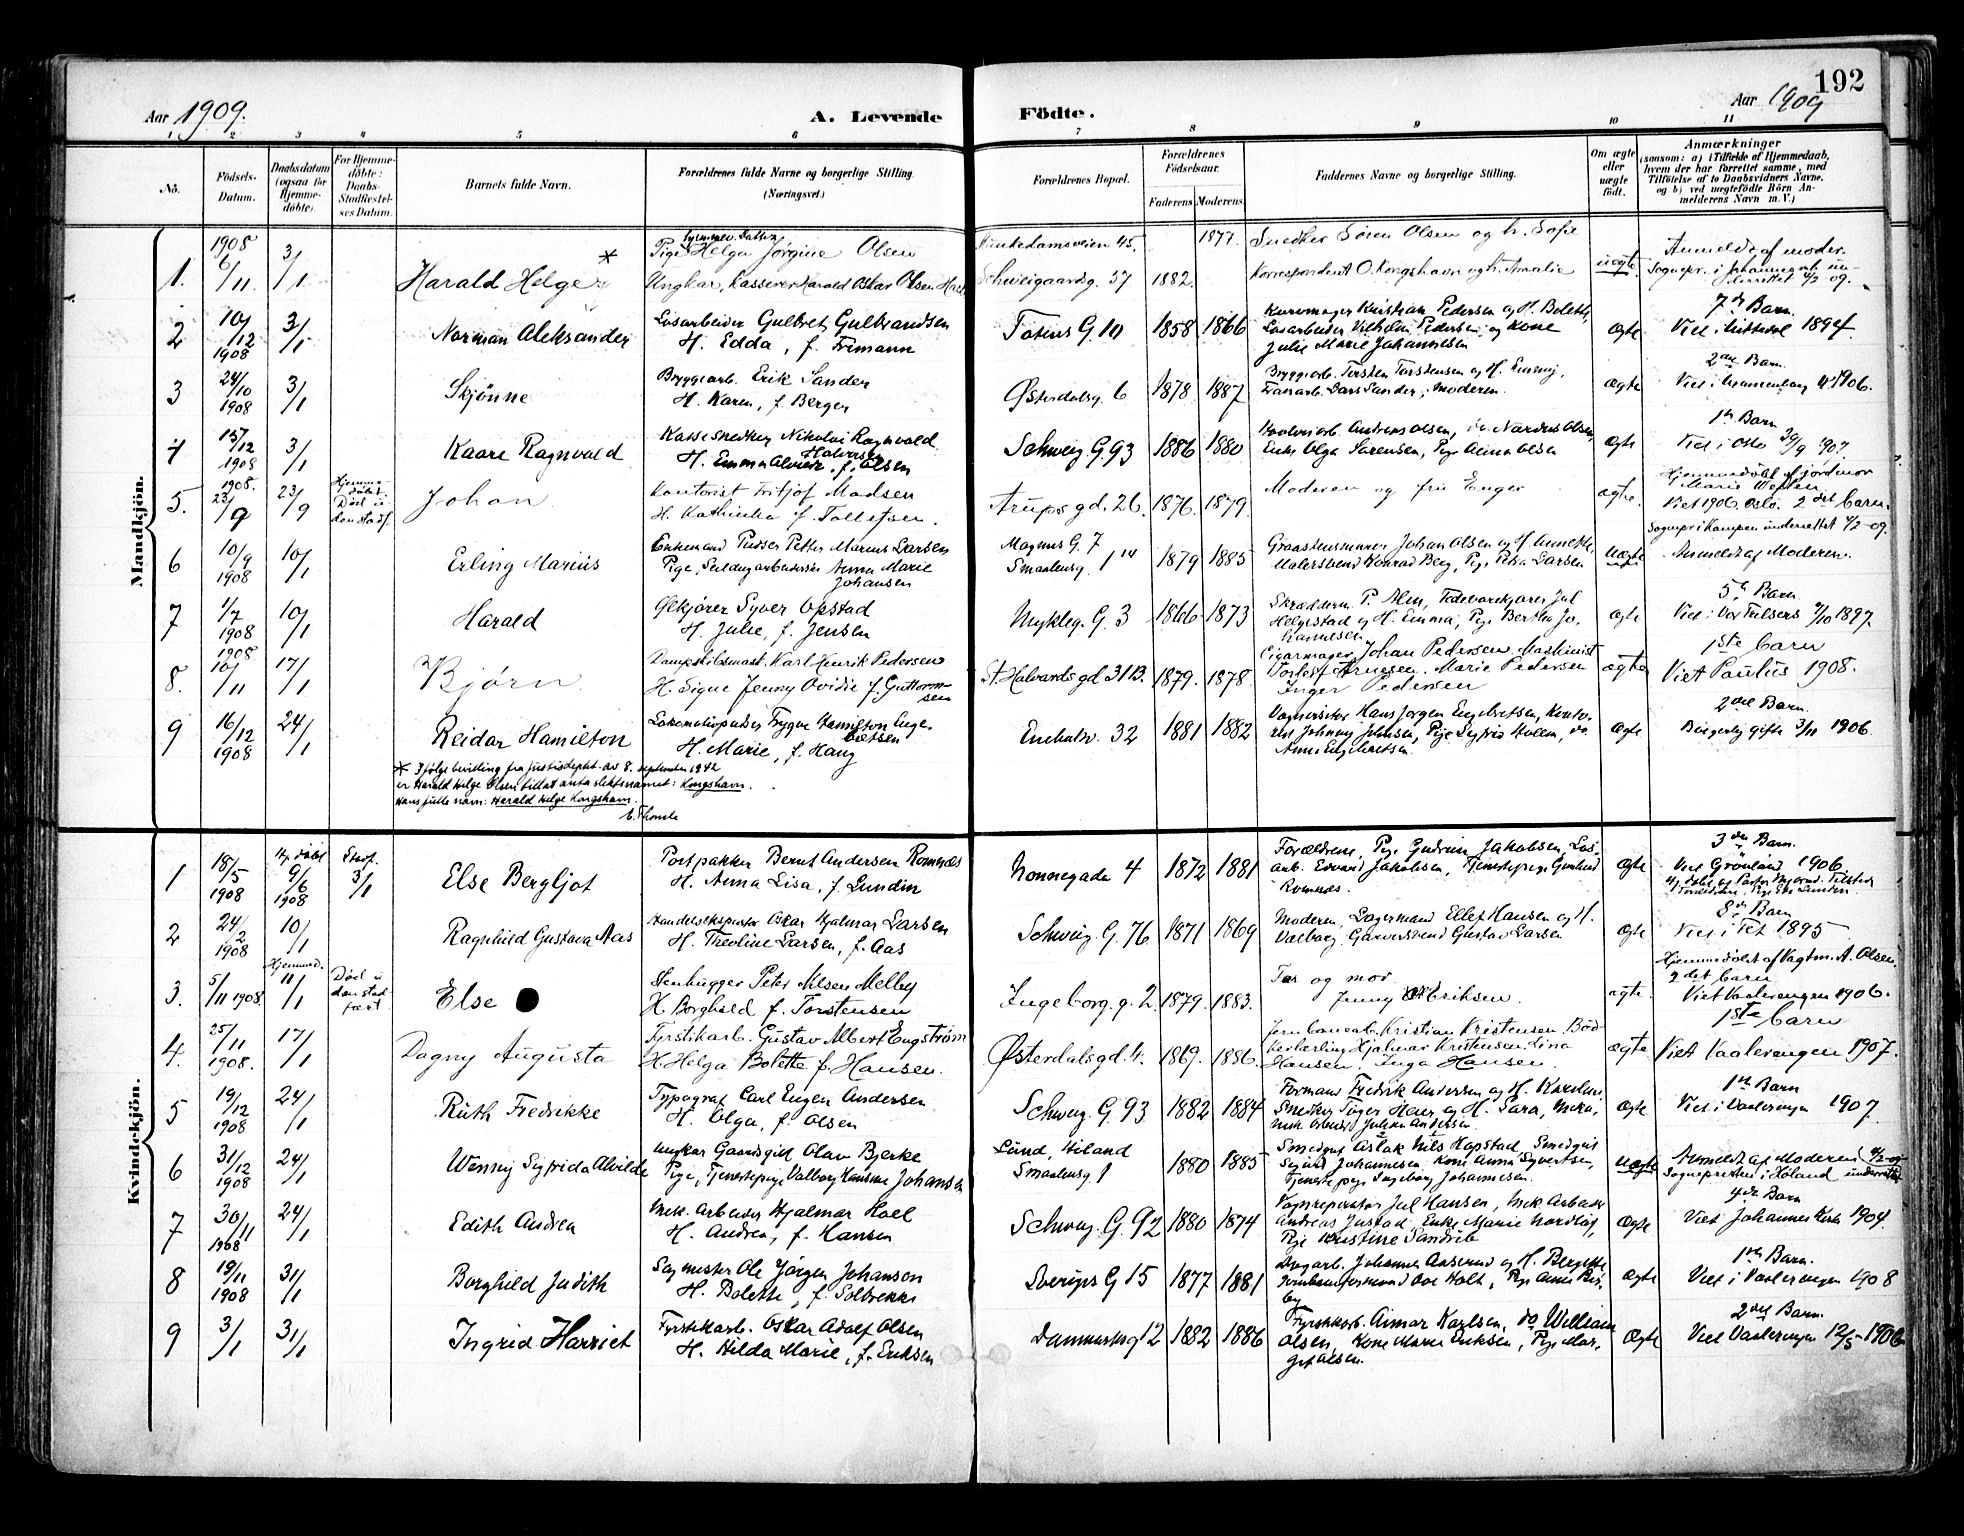 192
Aar 1909.
A. Levende
Födte.
Aar 1909
1 2 3 4 5 6 7 8 9 10 11
No.
Födsels-Datum.
Daabsdatum (ogsaa for Hjemme-döbte).
For Hjemme-döbte: Daabs-Stadfæstel-ses Datum.
Barnets fulde Navn.
Forældrenes fulde Navne og borgerlige Stilling. (Næringsvei.)
Forældrenes Bopæl.
Forældrenes Födselsaar.
Faderens Moderens
Faddernes Navne og borgerlige Stilling.
Om ægte eller uægte født.
Anmærkninger
(saasom: a) i Tilfælde af Hjemmedaab, hvem der har forrettet samme, med Tilföielse af to Daabsvidners Navne, og b) ved uægtefödte Börn An-melderens Navn m. V.)
Mandkjön.
1. 1908 6/11. 3/1
Harald Helge *
Pige Helga Jørgine Olsen
Ungkar, Kasserer Harald Oskar Olsen
Munkedamsveien 45.
Schweigaardsg. 57
1882. 1877.
Snedker Søren Olsen og h. Sofie
Korrespondent O. Kongshavn og h. Amalie
uægte
Anmeldt af moder.
2 10/12 1908 3/1
Norman Aleksander
Løsarbeider Gulbrandsen
H. Edda, f. Fremann
Totens G. 10
1858 1866
Kurvmager Kristian Pedersen og H. Bolette,
Løsarbeider Vilhelm Pedersen og Kone
Julie Marie Johannesen
ægte
7de Barn.
1894.
3 24/10 1908 3/1
Skjønne
Bryggearb. Erik Sander
H. Karen, f. Berger
Østerdalsg. 6
1878 1887
Bryggearb. Torsten Torstensen og H. Emmy,
Lars Sander, Moderen.
ægte
2det Barn.
1906.
4 15/12 1908 3/1
Kaare Ragnvald
Kassesnedker Nikolai Ragnvald Halvorsen
H. Emma Alvilde, f. Olsen
Schweig. G. 93
1886 1880
Andreas Olsen, do. Nardus Olsen,
Enke Olga Sørensen, Pige Olsen
ægte
1ste Barn
Viet i Oslo 29/9 1907.
5. 1908. 23/9 23/9
Hjemme døbt. Død u den stadf.
Johan
Kontorist Fritjof Madsen
H. Kathinka f. Tollefsen.
Arupsgd. 26.
1876. 1879.
Moderen og fru Enger
ægte.
Hjemmedøbt af jordmor
Viet 1906. Oslo. 2det barn.
6 10/9 1908 10/1
Erling Marius
Enkemand Pudser Petter Marius Larsen
Pige, Anna Marie Johansen
Magnus G. 7
Smaalensg. 1
1879 1885
Johan Olsen og H. Annette,
Malersvend Konrad Berg, Pige Petra Larsen
uægte
Sognepr. i Kampen underrettet 4/2-09.
Anmeldt af Moderen.
7 1/7 1908 10/1
Harald
Ølkjører Syver Opstad
H. Julie, f. Jensen
Mykleg. G. 3
1866 1873
Skrædderm. P. Alm,
Helgestad og H. Emma, Pige Bertha Jo-
hannesen
ægte
5te Barn.
Viet i Vor Frelsers 1897
8. 1908 10/11 17/1
Bjørn.
Dampskibsmask. Karl Henrik Pedersen
H. Signe Jenny Ovidie f. Guttorm-
sen
St. Halvardsgd 31 B.
1879. 1878.
Cigarmager Johan Pedersen. Maskinist
Arnesen. Marie Pedersen
Inger Pedersen
ægte
1ste barn
Viet Paulus 1908.
9 16/12 1908 24/1
Reidar Hamilton
Lokomotivpudser Trygve Hamilton Enge-
bretsen
H. Marie, f. Haug
Enebakv. 32
1881 1882
Vognvisitør Hans Jørgen Engebretsen, Konto-
rist Johnny Johnsen, Pige Sigfrid Hollem, do.
Anna Engebretsen.
ægte
2det Barn.
Borgerlig gifte 3/11 1906.
* Ifølge bevilling fra Justisdeptet. av 8. september 1942
er Harald Helge Olsen tillatt anta slektsnavnet: Kongshavn.
Hans fulle navn: Harald Helge Kongshavn.
Kvindekjön.
1 18/5 1908 Hj. døbt 9/6 1908 Stadf. 3/1
Else Bergljot
Postpakker Bernt Andersen Romnæs
H. Anna Lisa, f. Lundin
Nonnegada 4
1872 1881
Forældrene, Pige Gudrun Jakobsen, Løs-
arb. Edvard Jakobsen, Tjenestepige Gunhild
Romnæs.
ægte
3die Barn.
Viet Grönland 1906
2 24/2 1908 10/1
Ragnhild Gustava Aas
Handelsekspeditør Oskar Hjalmar Larsen
H. Theoline Larsen, f. Aas
Schweig. G. 76
1871 1869
Moderen, Lagermand Ellef Hansen og H.
Valborg, Garversvend Gustav Larsen
ægte
8de Barn
1895
3. 5/11 1908. Hjemmed. 11/1
Død u den stad-fæst
Else
Stenhugger Peter Nilsen Melby
H. Borghild f. Torstensen
Ingeborg. g. 2
1879. 1883.
Far og mor
Jenny Eriksen.
ægte.
Hjemmedøbt af Vagtm. A. Olsen.
2det barn
Viet Vaalerengen 1906.
4. 25/11 1908. 17/1
Dagny Augusta
Fyrstikarb. Gustav Albert Engstrøm
H. Helga Bolette f. Hansen.
Østerdalsgd. 4.
1869. 1886.
Kristian Kristensen. Bød-
kerlærling Hjalmar Kristensen. Lina
Hansen, Inga Hansen.
ægte
1ste barn
Viet Vaalerengen 1907.
5 19/12 1908 24/1
Ruth Fredrikke
Typograf Carl Eugen Andersen
H. Olga, f. Olsen
Schweig. G. 93
1882 1884
Formand Fredrik Andersen og H. Karoline,
Snedker og H. Sara,
Julian Andersen
ægte
1ste Barn
Viet i Vaalerengen 1907.
6 31/12 1908 24/1
Wenny Sigfrida Alvilde
Ungkar Gaardsgut Olav Bjerke
Pige, Tjenestepige Valborg Johansen
Lund, Høland
Smaalensg 1
1880 1885
Smedgut Aslak Nils Hopstad, Smedgut
Sigurd Johannesen, Kone Anna Syvertsen,
Tjenestepige Ingeborg Johannesen
uægte
Anmeldt af Moderen
Sognepresten i Høland underrettet
7 30/11 1908 24/1
Edith Andrea
Mek. Arbeider Hjalmar Hoel
H. Andrea, f. Hansen
Schweig. G. 92
1880 1874
Vognreparatør Jul Hansen, Mek Arbeider
Andreas Justad, Enke Marie Nordlöf,
Pige Kristine Sandvik
ægte
4de Barn
Viet Johannes Kirke 1904.
8 19/11 1908 31/1
Borghild Judith
Sagmester Ole Jørgen Johanson
H. Bolette, f. Solbrekke
Sverigs G 15
1877 1881
Johannes Anserud og H. Bergitte
Holt, Pige Anna
ægte
1ste Barn.
Viet i Vaalerengen 1908
9 3/1 31/1
Ingrid Harriet
Fyrstikarb. Oskar Adolf Olsen
H. Hilda Marie, f. Eriksen
Danmarksg 12
1882 1886
Fyrstikarb. Einar Karlsen, do William
Olsen, Kone Marie Eriksen, Pige Mar-
git Olsen.
ægte
2det Barn.
Viet Vaalerengen 12/5-1906